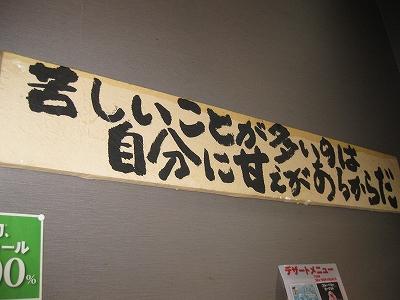 苦しいことが多いのは
自分に甘えがあるからだ
ール
00%
デザートメニュー